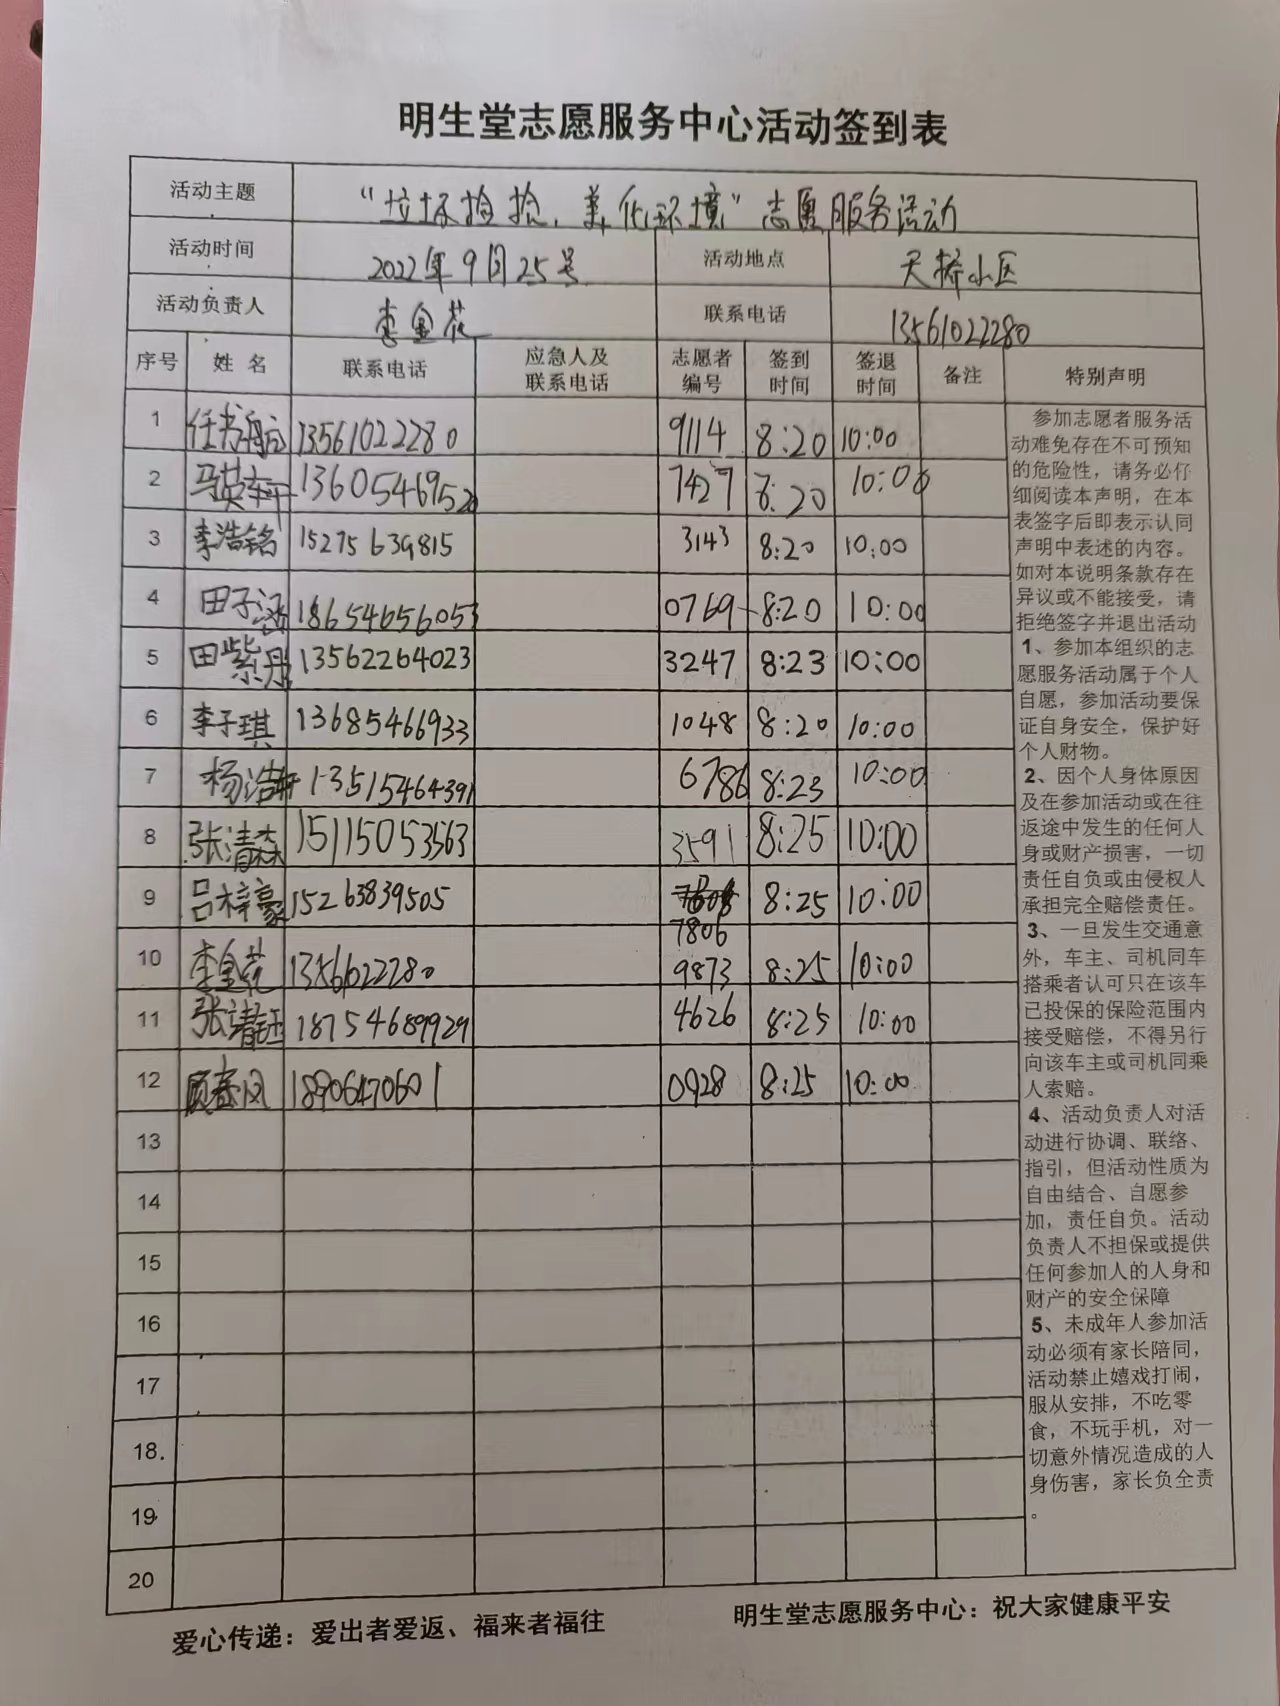 明生堂志愿服务中心活动签到表
活动主题 “垃圾捡捡,美化环境”志愿服务活动
活动时间 2022年9月25号 活动地点 天桥小区
活动负责人 李金花 联系电话 13561022280
序号 姓名 联系电话 应急人及联系电话 志愿者编号 签到时间 签退时间 备注 特别声明
1 任书 13561022280 9114 8:20 10:00
2 马英轩 13605469520 7427 8:20 10:00
3 李浩铭 15275639815 3143 8:20 10:00
4 田子涵 18654656053 0769 8:20 10:00
5 田紫丹 13562264023 3247 8:23 10:00
6 李子琪 13685466933 1048 8:20 10:00
7 杨浩轩 13515464391 6786 8:23 10:00
8 张清森 15115053563 3591 8:25 10:00
9 吕梓豪 15263839505 7806 8:25 10:00
10 李金花 9873 8:25 10:00
11 张靖钰 18754689929 4626 8:25 10:00
12 顾春风 18906470601 0928 8:25 10:00
13
14
15
16
17
18.
19
20
参加志愿者服务活
动难免存在不可预知
的危险性，请务必仔
细阅读本声明，在本
表签字后即表示认同
声明中表述的内容。
如对本说明条款存在
异议或不能接受，请
拒绝签字并退出活动
1、参加本组织的志
愿服务活动属于个人
自愿，参加活动要保
证自身安全，保护好
个人财物。
2、因个人身体原因
及在参加活动或在往
返途中发生的任何人
身或财产损害，一切
责任自负或由侵权人
承担完全赔偿责任。
3、一旦发生交通意
外，车主、司机同车
搭乘者认可只在该车
已投保的保险范围内
接受赔偿，不得另行
向该车主或司机同乘
人索赔。
4、活动负责人对活
动进行协调、联络、
指引，但活动性质为
自由结合、自愿参
加，责任自负。活动
负责人不担保或提供
任何参加人的人身和
财产的安全保障
5、未成年人参加活
动必须有家长陪同，
活动禁止嬉戏打闹，
服从安排，不吃零
食，不玩手机，对一
切意外情况造成的人
身伤害，家长负全责
。
爱心传递：爱出者爱返、福来者福往
明生堂志愿服务中心：祝大家健康平安